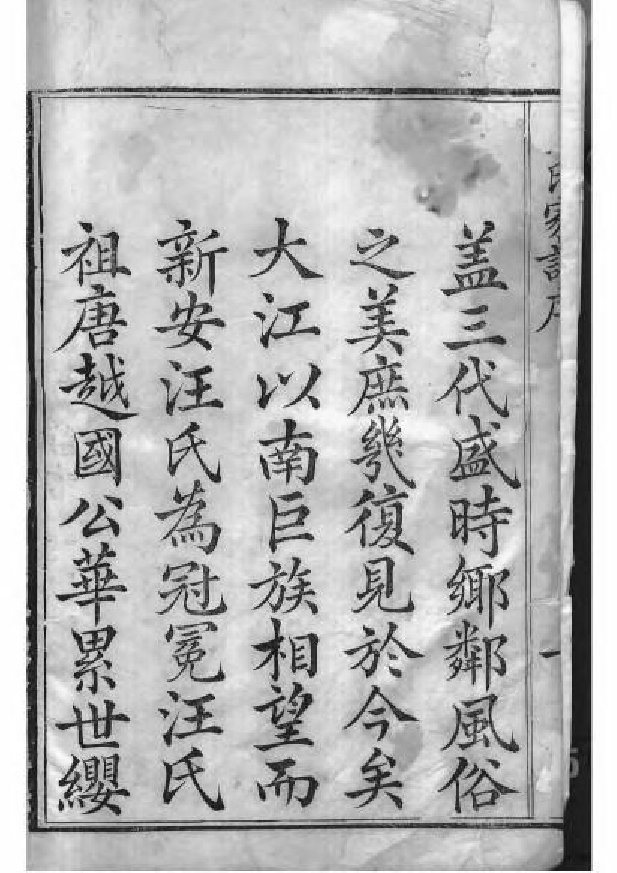 氏家譜序
一
蓋三代盛時鄉鄰風俗
之美庶幾復見於今矣
大江以南巨族相望而
新安汪氏為冠冕汪氏
祖唐越國公華累世纓